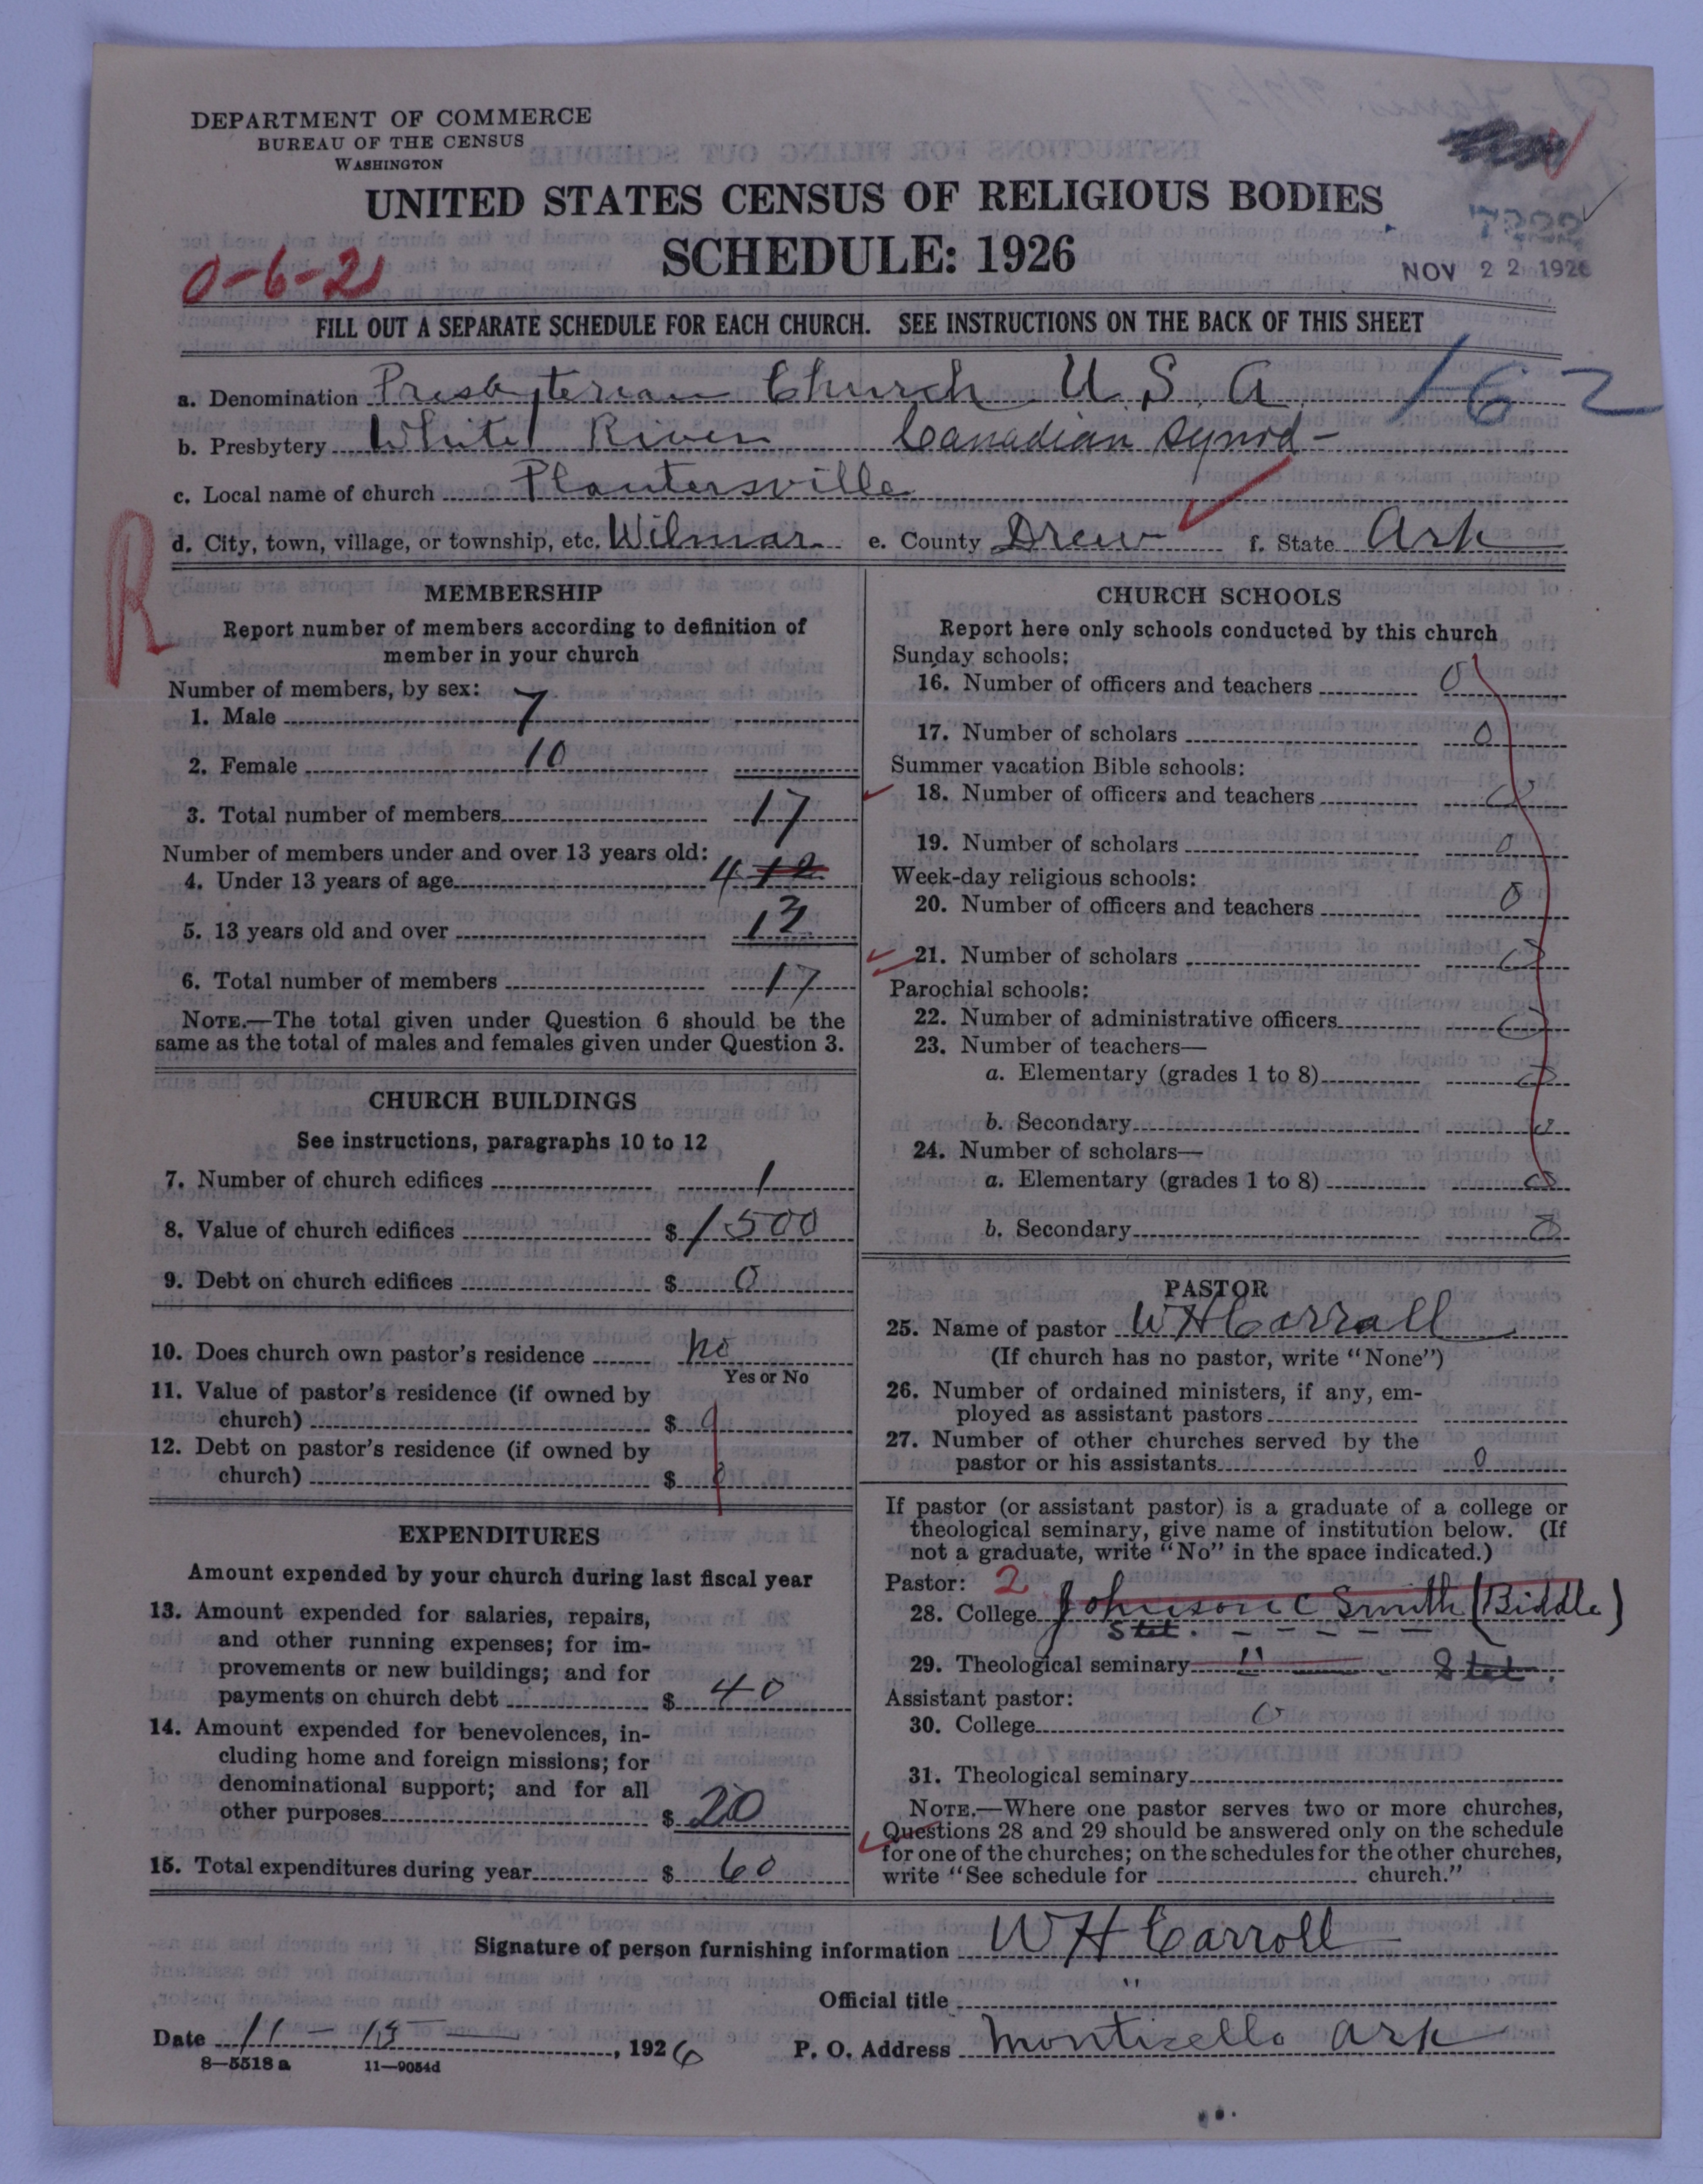 DEPARTMENT OF COMMERCE
BUREAU OF THE CENSUS
WASHINGTON
UNITED STATES CENSUS OF RELIGIOUS BODIES
SCHEDULE: 1926
NOV 22 1926
0-6-21
FILL OUT A SEPARATE SCHEDULE FOR EACH CHURCH. SEE INSTRUCTIONS ON THE BACK OF THIS SHEET
a. Denomination Presbyterian Church U. S. A
162
b. Presbytery White River Canadian Synod-
c. Local name of church Plantersville
R
d. City, town, village, or township, etc. Wilmar e. County Drew f. State Ark
MEMBERSHIP
Report number of members according to definition of
member in your church
Number of members, by sex:
1. Male 7
2. Female 10
3. Total number of members 17
Number of members under and over 13 years old:
4. Under 13 years of age 4
5. 13 years old and over 13
6. Total number of members 17
NOTE.—The total given under Question 6 should be the
same as the total of males and females given under Question 3.
CHURCH BUILDINGS
See instructions, paragraphs 10 to 12
7. Number of church edifices 1
8. Value of church edifices $ 1500
9. Debt on church edifices $ 0
10. Does church own pastor's residence no
Yes or No
11. Value of pastor's residence (if owned by
church) $ 0
12. Debt on pastor's residence (if owned by
church) $ 0
EXPENDITURES
Amount expended by your church during last fiscal year
13. Amount expended for salaries, repairs,
and other running expenses; for im-
provements or new buildings; and for
payments on church debt $ 40
14. Amount expended for benevolences, in-
cluding home and foreign missions; for
denominational support; and for all
other purposes $ 20
15. Total expenditures during year $ 60
CHURCH SCHOOLS
Report here only schools conducted by this church
Sunday schools:
16. Number of officers and teachers 0
17. Number of scholars 0
Summer vacation Bible schools:
18. Number of officers and teachers 0
19. Number of scholars 0
Week-day religious schools:
20. Number of officers and teachers 0
21. Number of scholars 0
Parochial schools:
22. Number of administrative officers 0
23. Number of teachers—
a. Elementary (grades 1 to 8) 0
b. Secondary 0
24. Number of scholars—
a. Elementary (grades 1 to 8) 0
b. Secondary 0
PASTOR
25. Name of pastor W H Carroll
(If church has no pastor, write "None")
26. Number of ordained ministers, if any, em-
ployed as assistant pastors
27. Number of other churches served by the
pastor or his assistants 0
If pastor (or assistant pastor) is a graduate of a college or
theological seminary, give name of institution below. (If
not a graduate, write "No" in the space indicated.)
Pastor: 2
28. College Johnson C Smith (Biddle)
Stet.
29. Theological seminary " Stet.
Assistant pastor:
30. College 0
31. Theological seminary
NOTE.—Where one pastor serves two or more churches,
Questions 28 and 29 should be answered only on the schedule
for one of the churches; on the schedules for the other churches,
write "See schedule for church."
Signature of person furnishing information W H Carroll
Official title "
Date 11-15, 1926 P. O. Address Monticello Ark
8—5518a 11—9054d